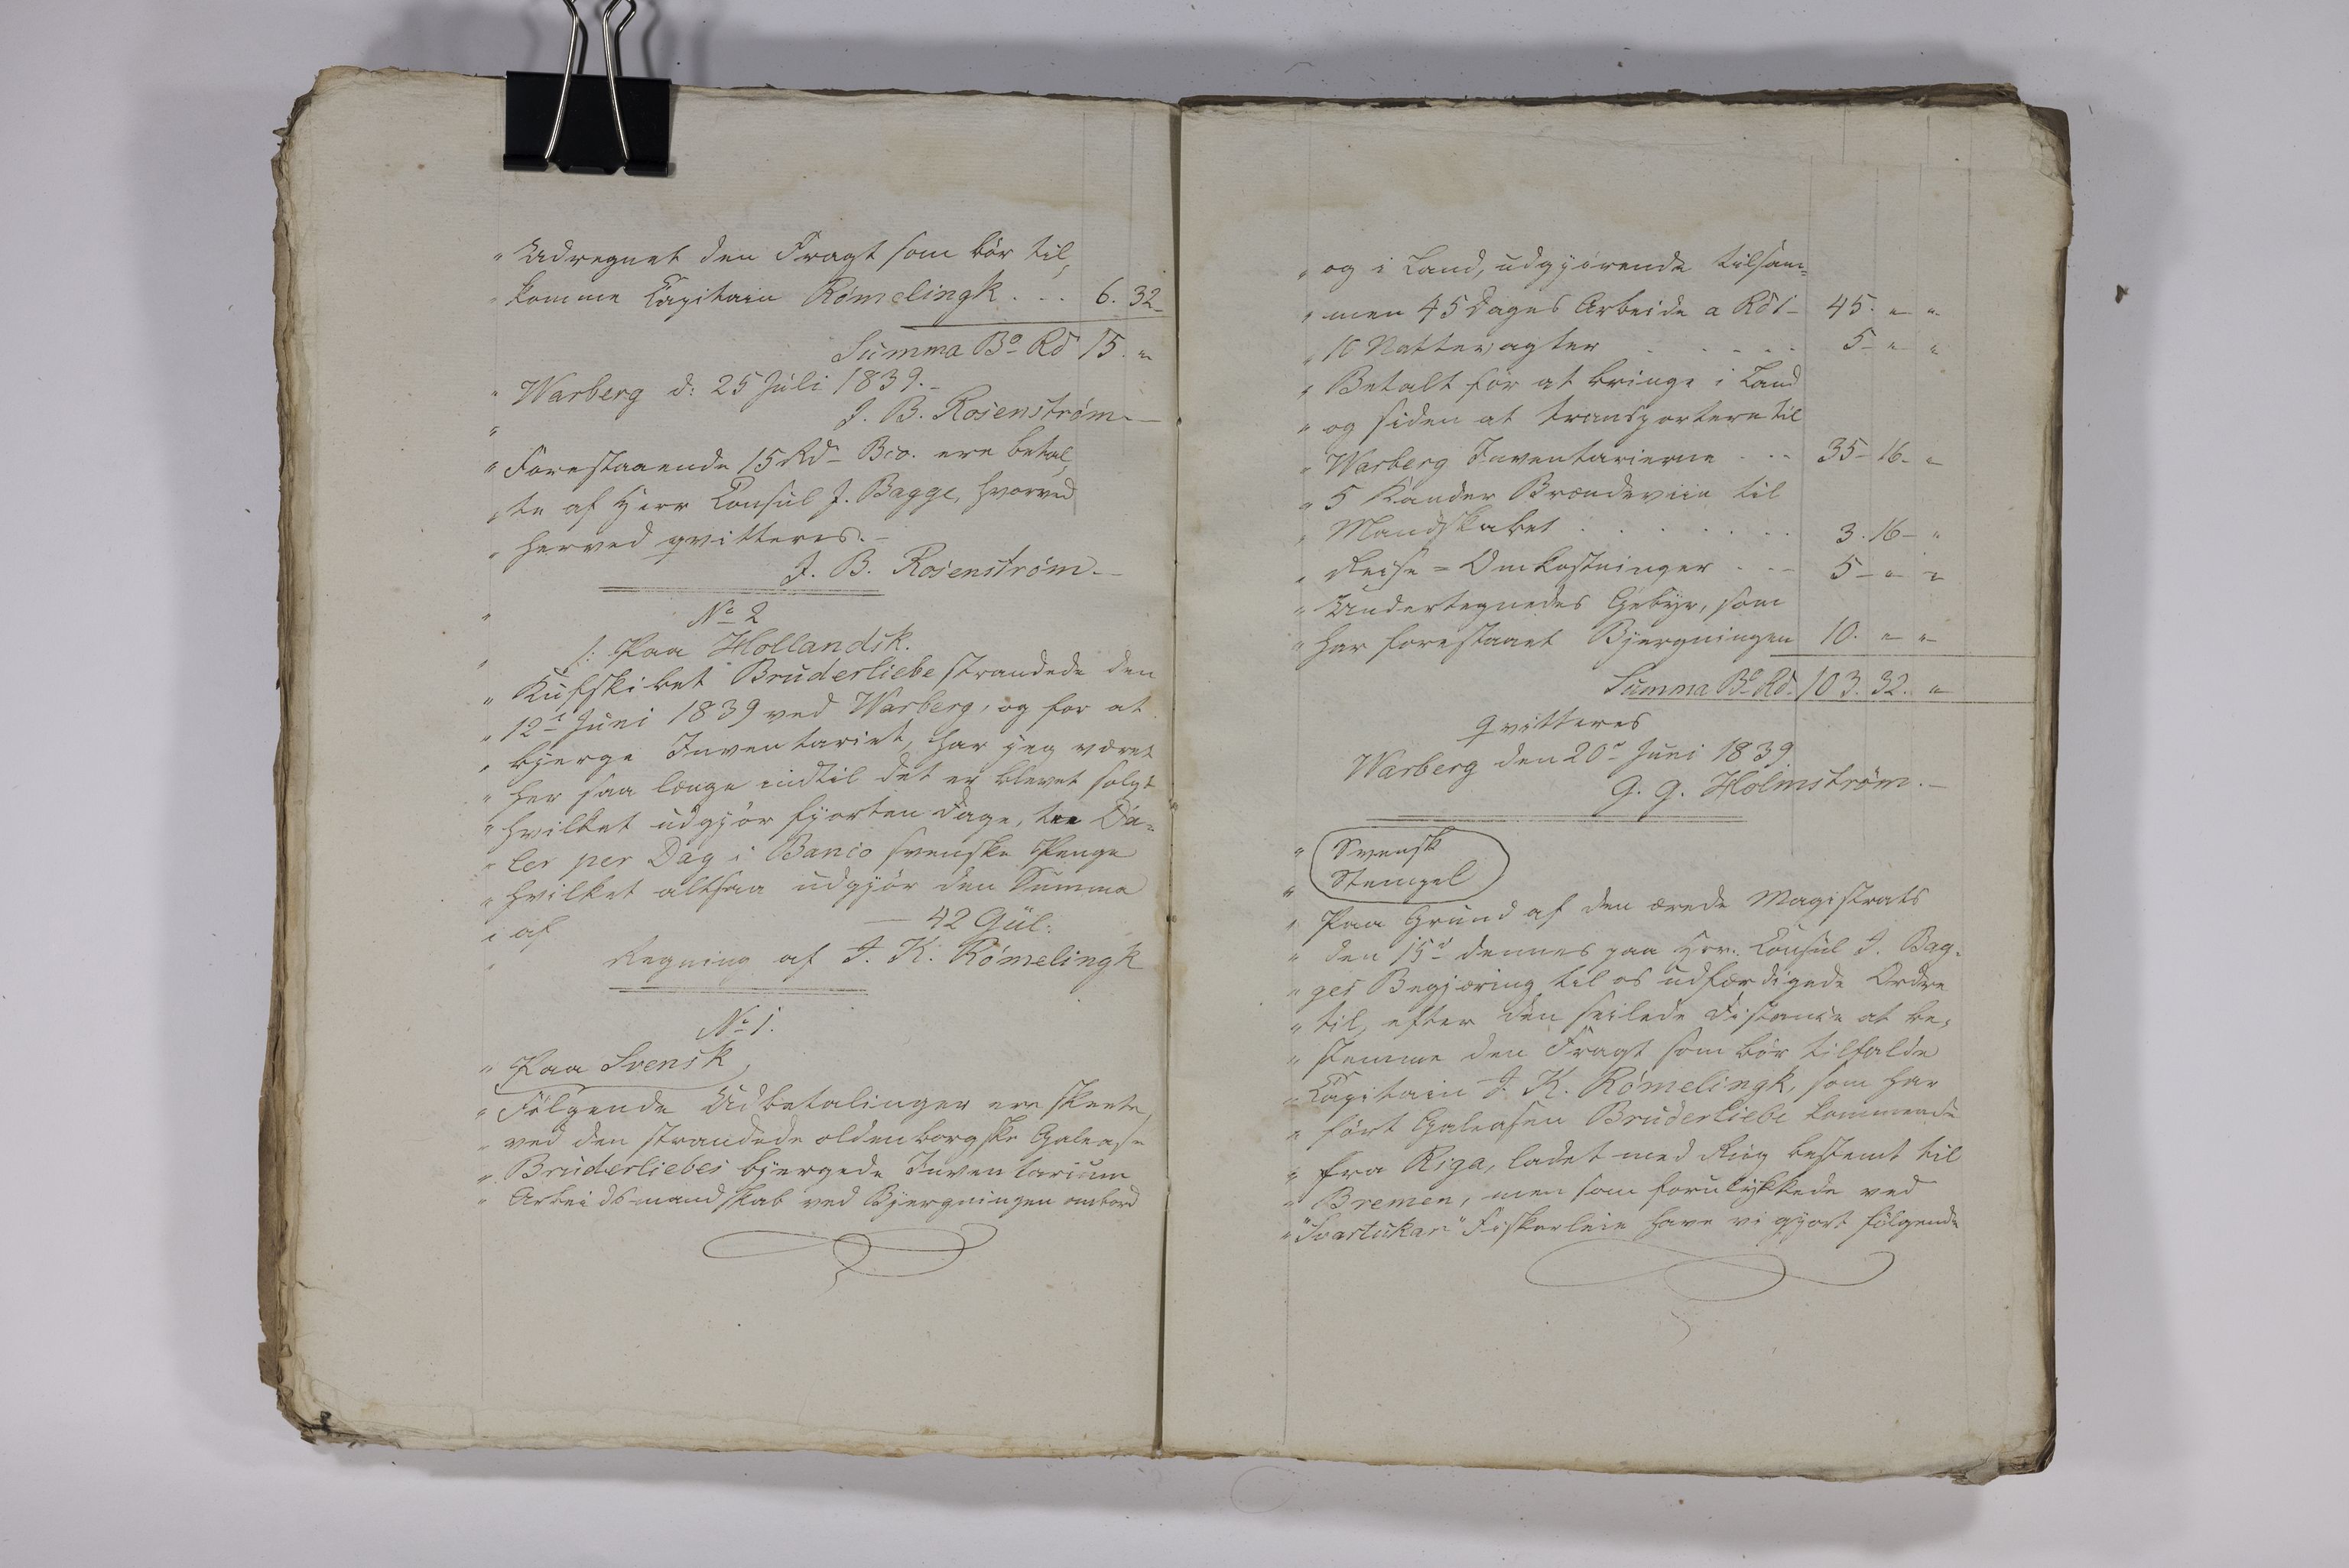 " Udregnet den Fragt som bör til,
" komme Capitain Römelingk . . . 6. 32_
Summa Bo Rd 15. "
" Warberg d: 25 Juli 1839._
" J. B. Rosenström._
" Forestaaende 15 Rd_ Bco. ere betal,
" te af Herr Consul J. Bagge, hvorved
" herved qvitteres._
J. B. Rosenström._
" No 2
" /: Paa Hollandsk.
" Kufskibet Bruderliebe strandede den
" 12te Juni 1839 ved Warberg, og for at
" bjerge Inventariet, har jeg været
" her saa længe indtil det er blevet solgt
" hvilket udgjör fjorten Dage, tre Da=
" ler per Dag i Banco svenske Penge
" hvilket altsaa udgjör den Summa
" af — 42 Gül:
" Regning af J. K. Römelingk
No 1.
" Paa Svensk
" Fölgende Udbetalinger ere skeete,
" ved den strandede oldenborgske Galease
" Bruderliebes bjergede Inventarium
" Arbeidsmandskab ved Bjergningen ombord
" og i Land, udgjörende tilsam=
" men 45 Dages Arbeide a Rd 1_ 45. " "
" 10 Nattevagter . . . . . 5_ " "
" Betalt for at bringe i Land
" og siden at transportere til
" Warberg Inventarierne . . . 35_ 16_ "
" 5 Kander Brændeviin til
" Mandskabet . . . . . . . 3. 16_ "
" Reise=Omkostninger . . _ 5_ " "
" Undertegnedes Gebyr, som
" har forestaaet Bjergningen 10. " "
Summa Bo Rd. 103. 32. "
qvitteres
Warberg den 20de Juni 1839.
G. G. Holmström._
" Svensk
" Stempel
" Paa Grund af den ærede Magistrats
" den 15de dennes paa Hrr. Consul J. Bag=
" ges Begjæring til os udfærdigede Ordre
" til, efter den seilede Distance at be,
" stemme den Fragt som bör tilfalde
" Capitain J. K. Römelingk, som har
" fört Galeasen Bruderliebe kommende
" fra Riga, ladet med Rug bestemt til
" Bremen, men som forulykkede ved
" "Svartukar" Fiskerleie have vi gjort fölgende